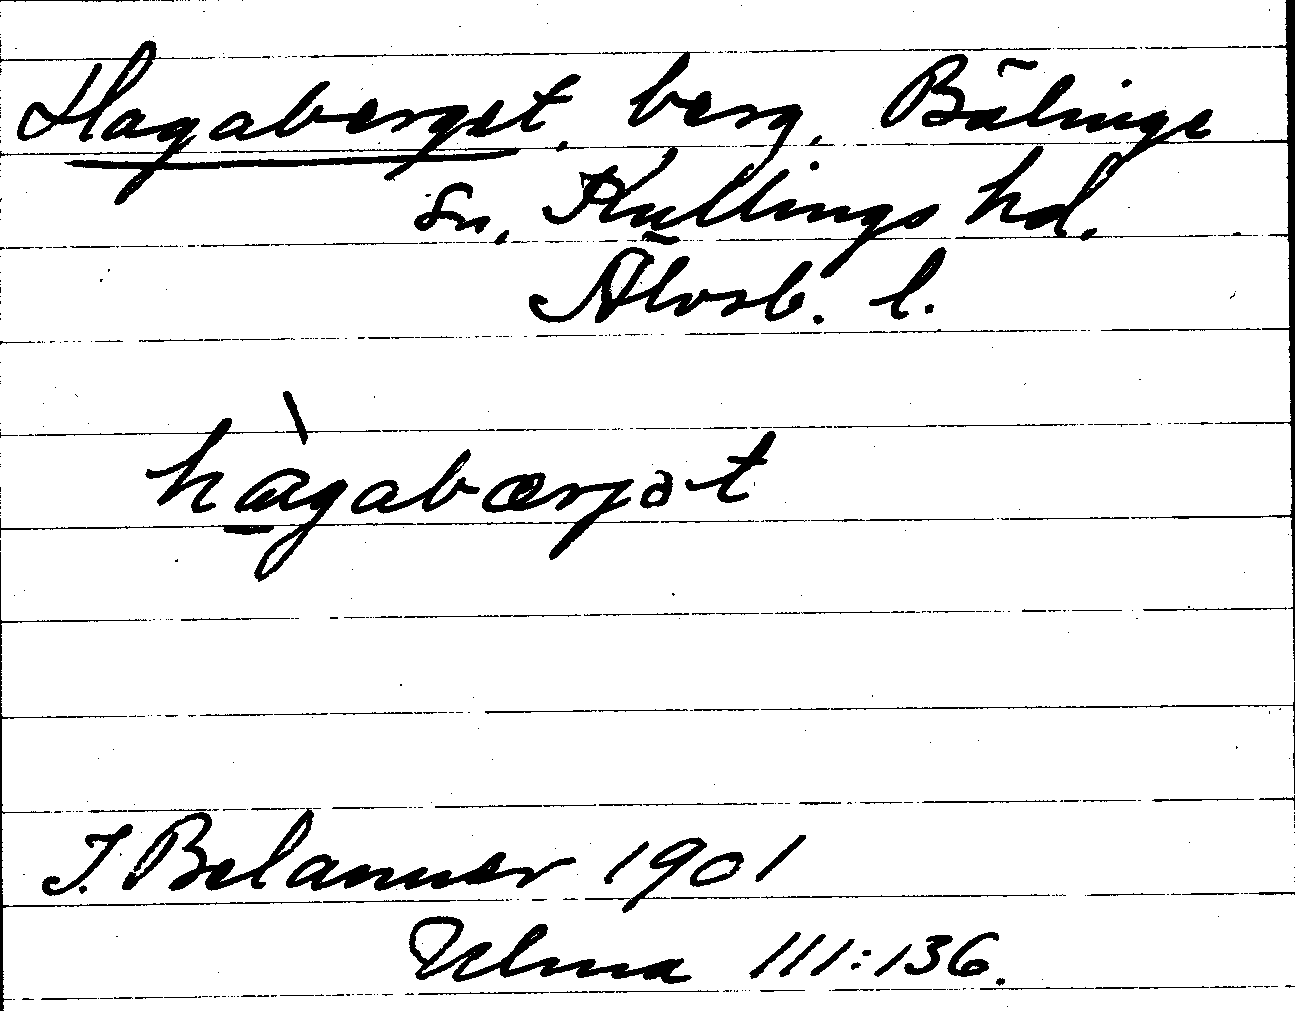 Hagaberget, berg, Bälinge
sn, Kullings hd.
Älvsb. l.
hàgabærjət
J. Belanner 1901
Ulma 111:136.